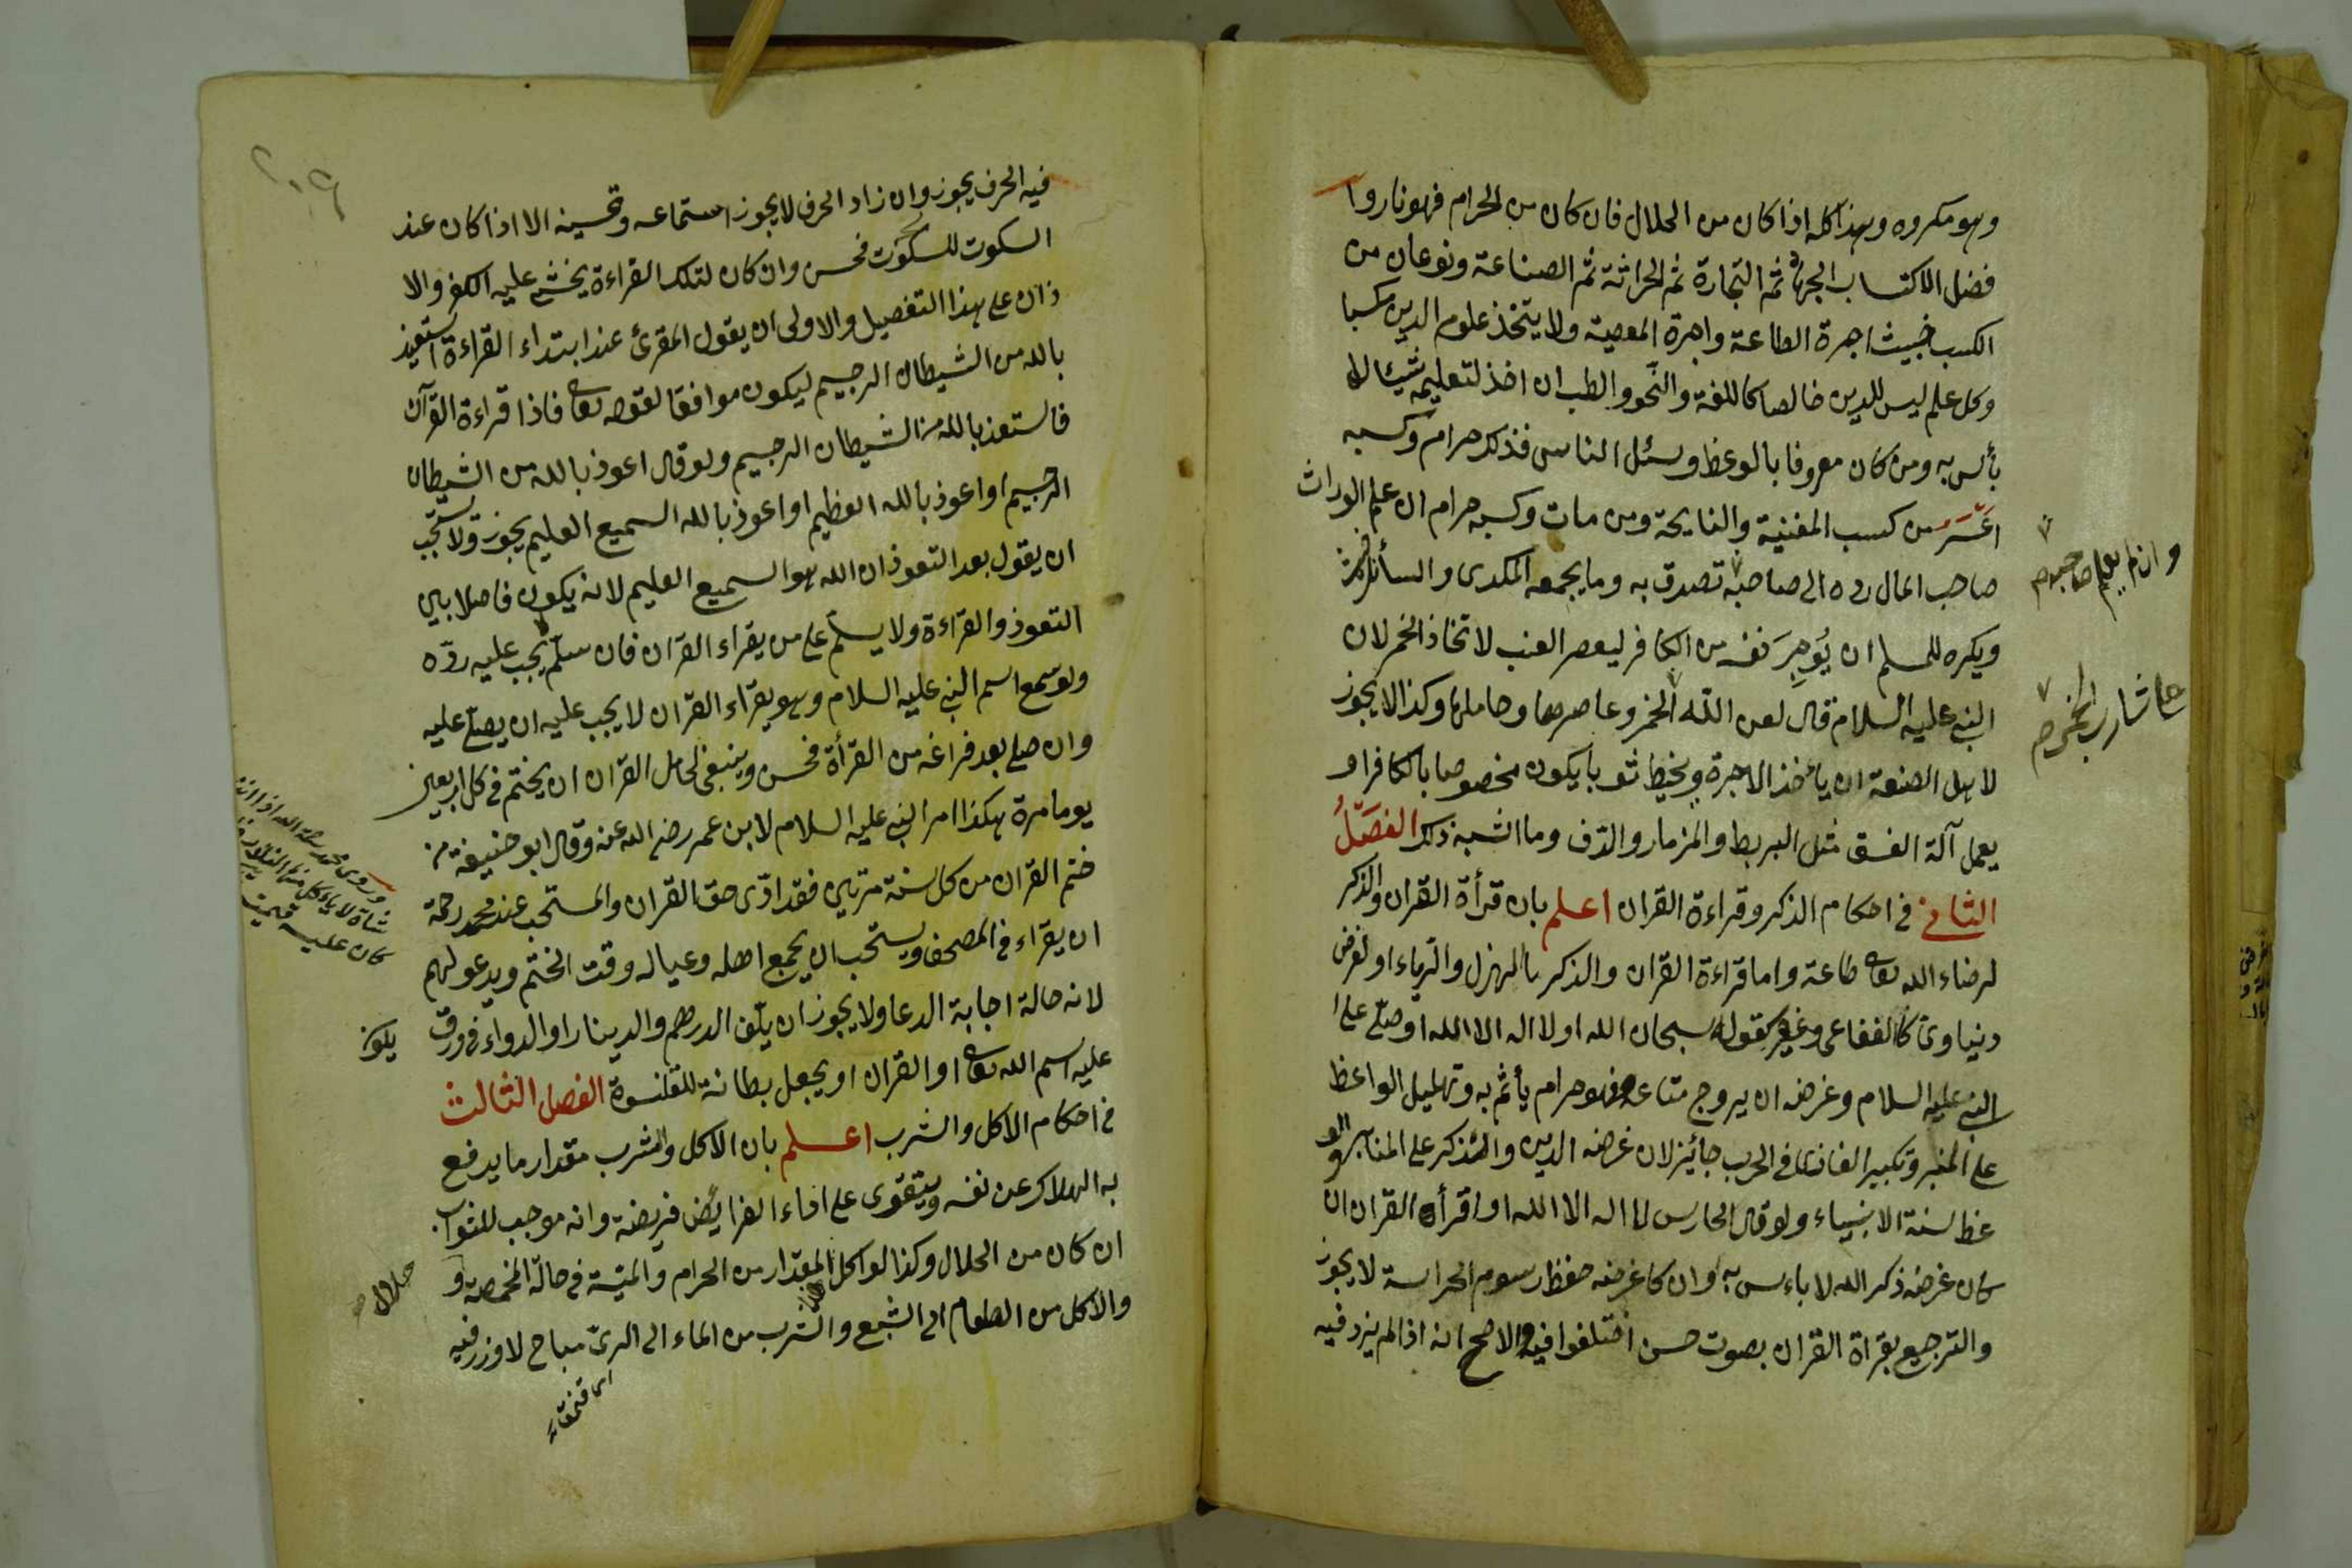 وهو مكروه وهذا كله اذا كان من الحلال فان كان من الحرام فهو نار وا
فضل الاكتساب الجهاد ثم التجارة ثم الحراثة ثم الصناعة ونوعان من
الكسب خبيث اجرة الطاعة واجرة المعصية ولا يتخذ علوم الدين مكسبا
وكل علم ليس للدين خالصا كاللغة والنحو والطب ان اخذ لتعليمه شيئا لا
بأس به ومن كان معروفا بالوعظ وسئل الناس فذلك حرام وكسبه
اشر من كسب المغنية والنايحة ومن مات وكسبه حرام ان علم الوراث
صاحب المال رده الى صاحبه تصدق به وما يجمعه المكدى والسائل
وان لم يعلم صاحبه
ويكره للمسلم ان يوجر نفسه من الكافر ليعصر العنب لاتخاذ الخمر لان
النبى عليه السلام قال لعن الله الخمر وعاصرها وحاملها وكذا لا يجوز
شارب الخمر
لاهل الصنعة ان يأخذ الاجرة ويخيط ثوبا يكون مخصوصا بالكافر او
يعمل آلة الفسق مثل البربط والمزمار والدف وما اشبه ذلك الفصل
الثانى فى احكام الذكر وقراءة القران اعلم بان قرأة القران والذكر
لرضاء الله تعالى طاعة واما قراءة القران والذكر بالهزل والرياء او لغرض
دنياوى كالفقاعى وغيره كقوله سبحان الله او لا اله الا الله او صلى على ا
النبى عليه السلام وغرضه ان يروج متاعه فهو حرام يأثم به وتهليل الواعظ
على المنبر وتكبير الغازى فى الحرب جائز لان غرضه الدين والتذكر على المنابر والو
عظ سنة الانبياء ولو قال الحارس لا اله الا الله او اقرأه القران ان
كان غرضه ذكر الله لا باءس به وان كا غرضه حفظ رسوم الحراسة لا يجوز
والترجيع بقراة القران بصوت حسن اختلفوا فيه والاصح انه اذا لم يزد فيه
فيه الحرف يجوز وان زاد الحرف لا يجوز استماعه وتحسينه الا اذا كان عند
السكوت للسكوت فحسن وان كان لتلك القراءة يخشى عليه الكفر والا
ذان على هذا التفصيل والاولى ان يقول المقرئ عند ابتداء القراءة استعيذ
بالله من الشيطان الرجيم ليكون موافقا لقوله تعالى فاذا قراءة القرآن
فاستعذ بالله من الشيطان الرجيم ولو قال اعوذ بالله من الشيطان
الرجيم او اعوذ بالله العظيم او اعوذ بالله السميع العليم يجوز ولا يستحب
ان يقول بعد التعوذ ان الله هو السميع العليم لانه يكون فاصلا بين
التعوذ والقراءة ولا يسلم على من يقراء القران فان سلم يجب عليه رده
ولو سمع اسم النبى عليه السلام وهو يقراء القران لا يجب عليه ان يصلى عليه
وان صلى بعد فراغه من القرأة فحسن وينبغى لحامل القران ان يختم فى كل اربعين
يوما مرة هكذا امر النبى عليه السلام لابن عمر رضى الله عنه وقال ابو حنيفة من
ختم القران من كل سنة مرتين فقد ادى حق القران والمستحب عند محمد رحمة
ان يقراء فى المصحف ويستحب ان يجمع اهله وعياله وقت الختم ويدعو لهم
لانه حالة اجابة الدعا ولا يجوز ان يلف الدرهم والدينار او الدواء فى ورق
يكون
عليه اسم الله تعالى او القران او يجعل بطانة للقلنسوة الفصل الثالث
فى احكام الاكل والشرب اعلم بان الاكل والشرب مقدار ما يدفع
به الهلاك عن نفسه ويتقوى على اداء الفرايض فريضة وانه موجب للثواب
ان كان من الحلال وكذا لو اكل المقدار من الحرام والميتة فى حالة المخمصة و
حلال
والاكل من الطعام الى الشبع والشرب من الماء الى الرى مباح لا وزر فيه